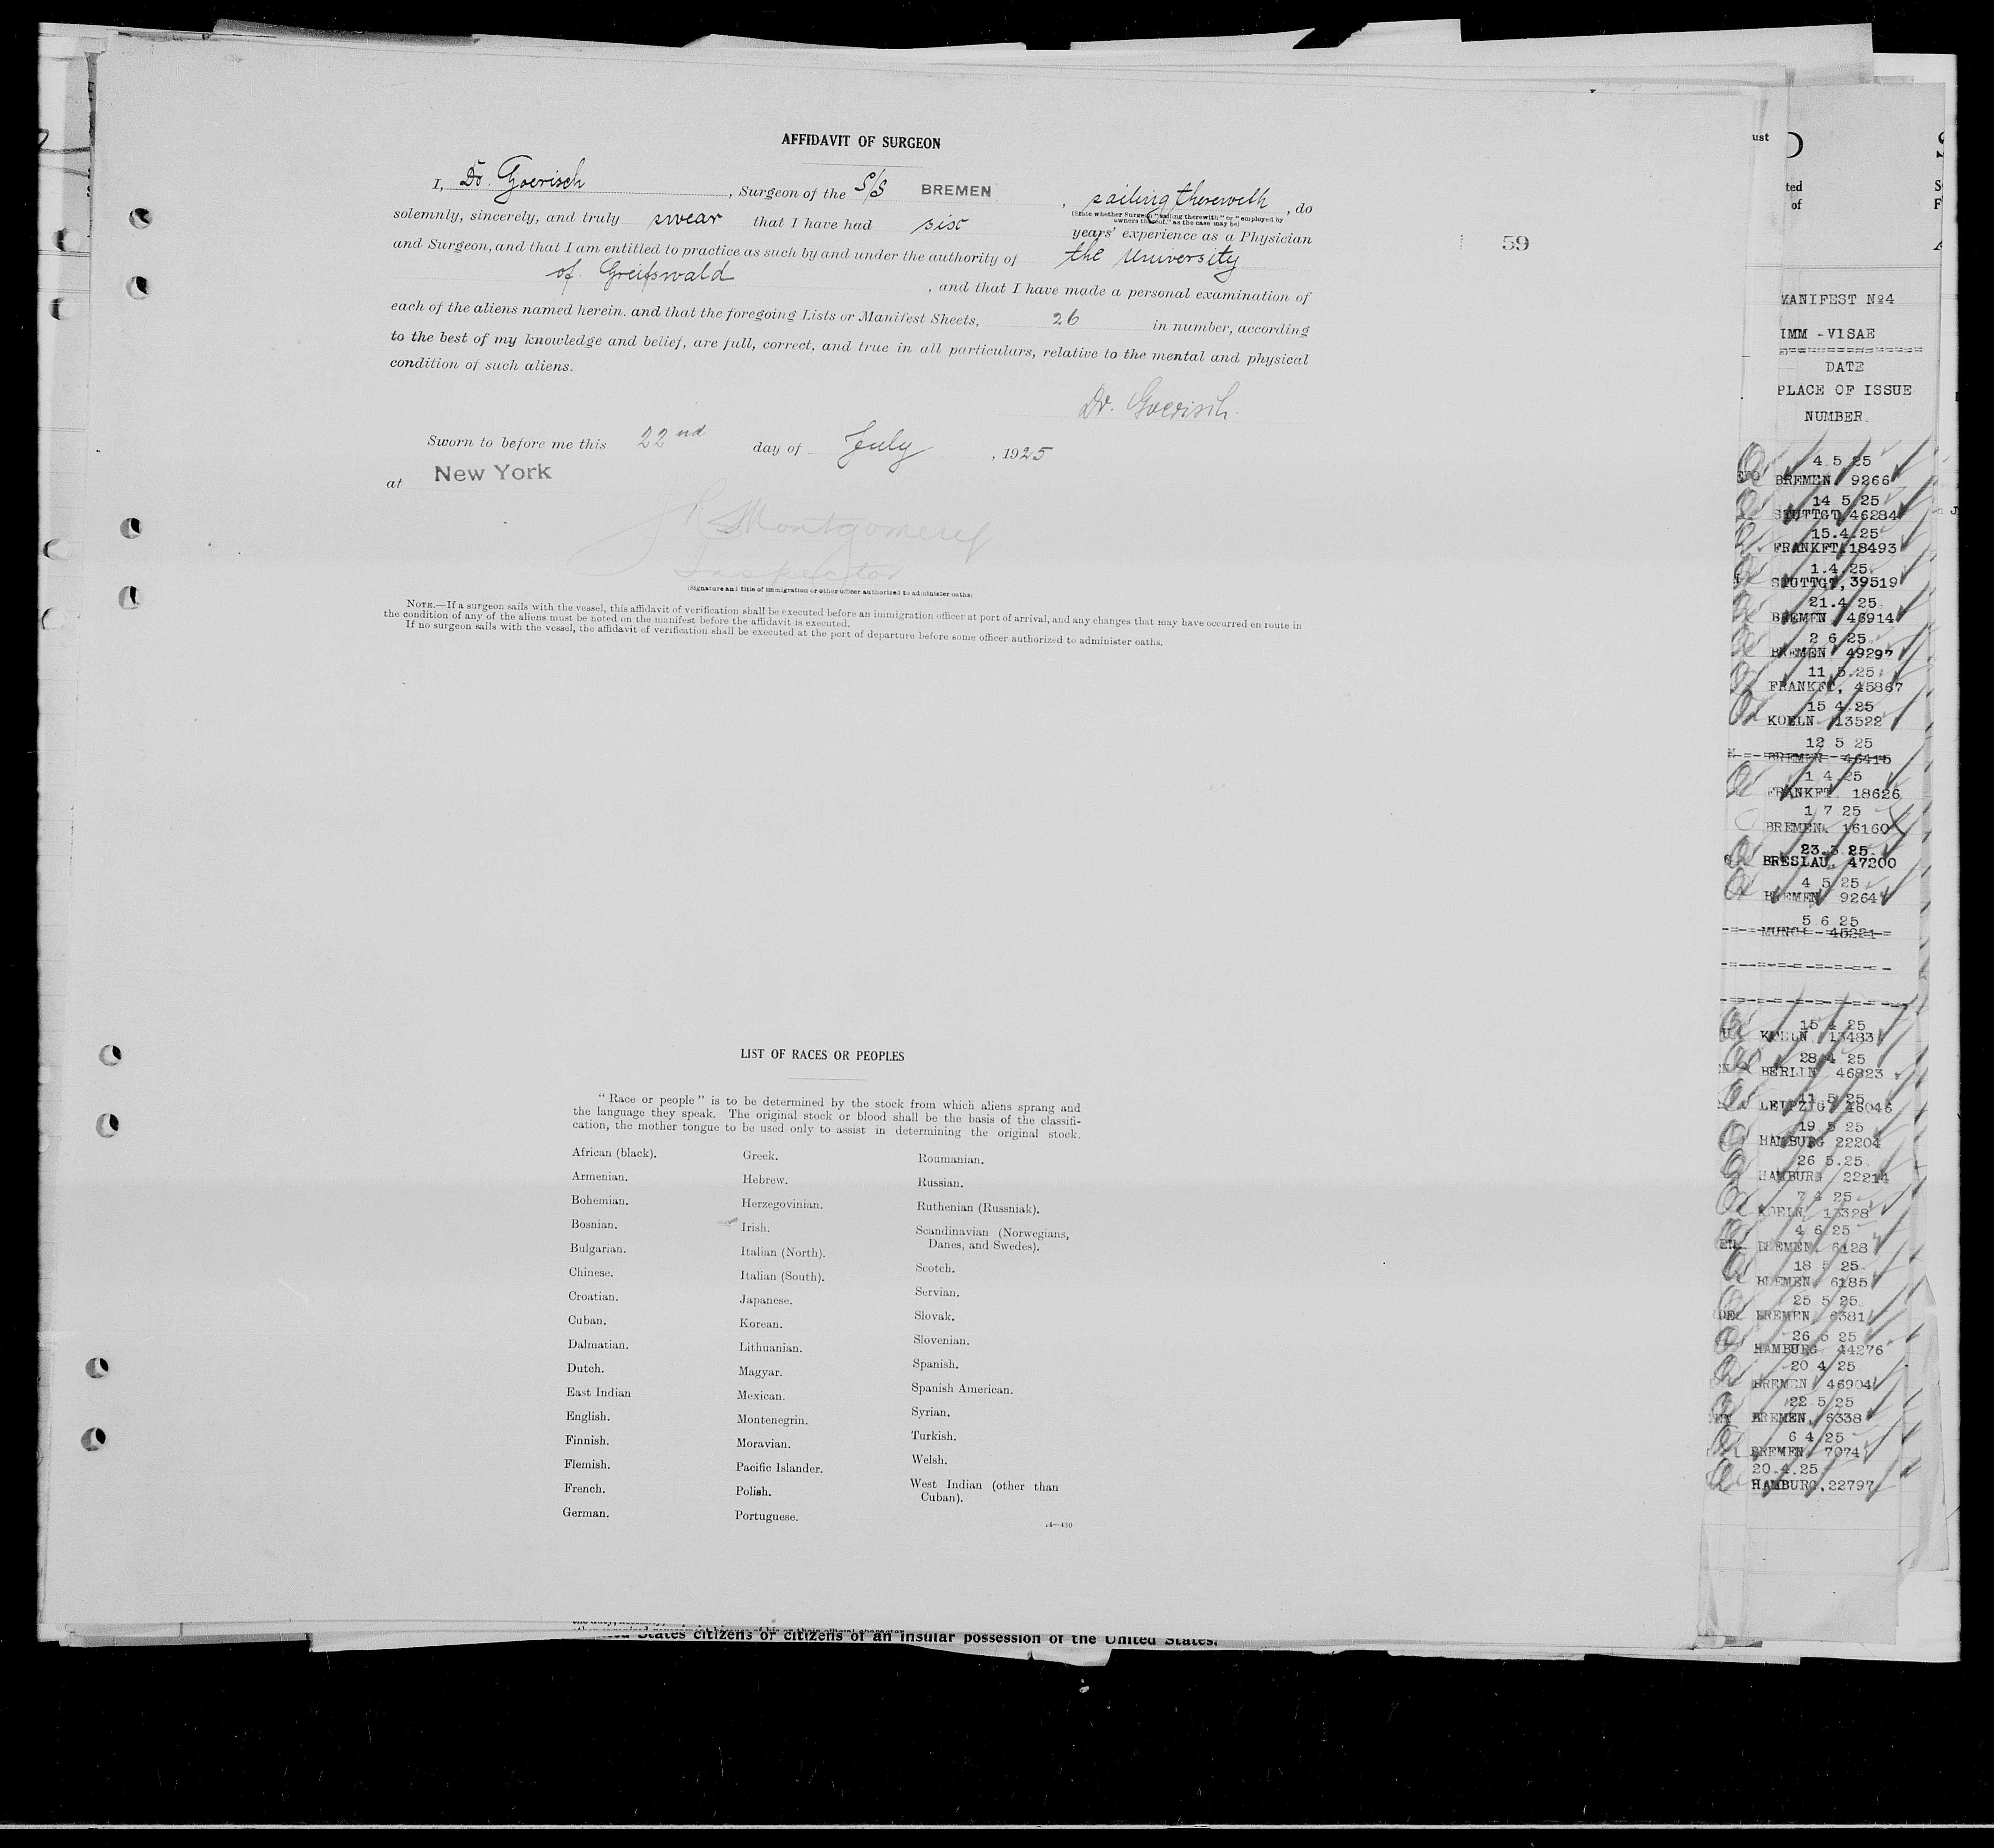 AFFIDAVIT OF SURGEON
I, Dr. Goerisch, Surgeon of the S/S BREMEN, sailing therewith, do
(State whether Surgeon "sailing therewith" or "employed by
owners thereof," as the case may be)
solemnly, sincerely, and truly swear that I have had six years' experience as a Physician
and Surgeon, and that I am entitled to practice as such by and under the authority of the University
of Greifswald, and that I have made a personal examination of
each of the aliens named herein. and that the foregoing Lists or Manifest Sheets, 26 in number, according
to the best of my knowledge and belief, are full, correct, and true in all particulars, relative to the mental and physical
condition of such aliens.
Dr. Goerisch.
Sworn to before me this 22nd day of July, 1925
at New York
Montgomery
Inspector
(Signature and title of immigration or other officer authorized to administer oaths)
NOTE.—If a surgeon sails with the vessel, this affidavit of verification shall be executed before an immigration officer at port of arrival, and any changes that may have occurred en route in
the condition of any of the aliens must be noted on the manifest before the affidavit is executed.
If no surgeon sails with the vessel, the affidavit of verification shall be executed at the port of departure before some officer authorized to administer oaths.
59
LIST OF RACES OR PEOPLES
"Race or people" is to be determined by the stock from which aliens sprang and
the language they speak. The original stock or blood shall be the basis of the classifi-
cation, the mother tongue to be used only to assist in determining the original stock.
African (black).
Armenian.
Bohemian.
Bosnian.
Bulgarian.
Chinese.
Croatian.
Cuban.
Dalmatian.
Dutch.
East Indian
English.
Finnish.
Flemish.
French.
German.
Greek.
Hebrew.
Herzegovinian.
Irish.
Italian (North).
Italian (South).
Japanese.
Korean.
Lithuanian.
Magyar.
Mexican.
Montenegrin.
Moravian.
Pacific Islander.
Polish.
Portuguese.
Roumanian.
Russian.
Ruthenian (Russniak).
Scandinavian (Norwegians,
Danes, and Swedes).
Scotch.
Servian.
Slovak.
Slovenian.
Spanish.
Spanish American.
Syrian.
Turkish.
Welsh.
West Indian (other than
Cuban).
14—430
States citizens or citizens of an insular possession of the United States.
ust
ted
of
MANIFEST №4
IMM -VISAE
DATE
PLACE OF ISSUE
NUMBER.
4 5 25
BREMEN 9266
14 5 25
STUTTGT 46284
15.4.25
FRANKFT.18493
1.4.25.
STUTTGT, 39519
21.4 25
BREMEN, 46914
2 6 25
BREMEN 49297
11.5.25.
FRANKFT, 45867
15 4.25
KOELN 13522
12 5 25
BREMEN 46415
1 4.25
FRANKFT. 18626
1 7 25
BREMEN. 16160
23.3 25.
BRESLAU, 47200
4 5 25
BREMEN 9264
5 6 25
15 4 25
KOELN 13483
28 4 25
BERLIN 46823
11 5 25
LEIPZIG 46046
19 5 25
HAMBURG 22204
26 5.25
HAMBURG 22214
7 4 25
KOELN 13328
4 6 25
BREMEN. 6128
18 5 25
BREMEN, 6185
25 5 25
BREMEN 6381
26 5 25
HAMBURG 44276
20 4 25
BREMEN 46904
22 5 25
BREMEN, 6338
6 4.25
BREMEN 7074
20.4.25.
HAMBURG,22797